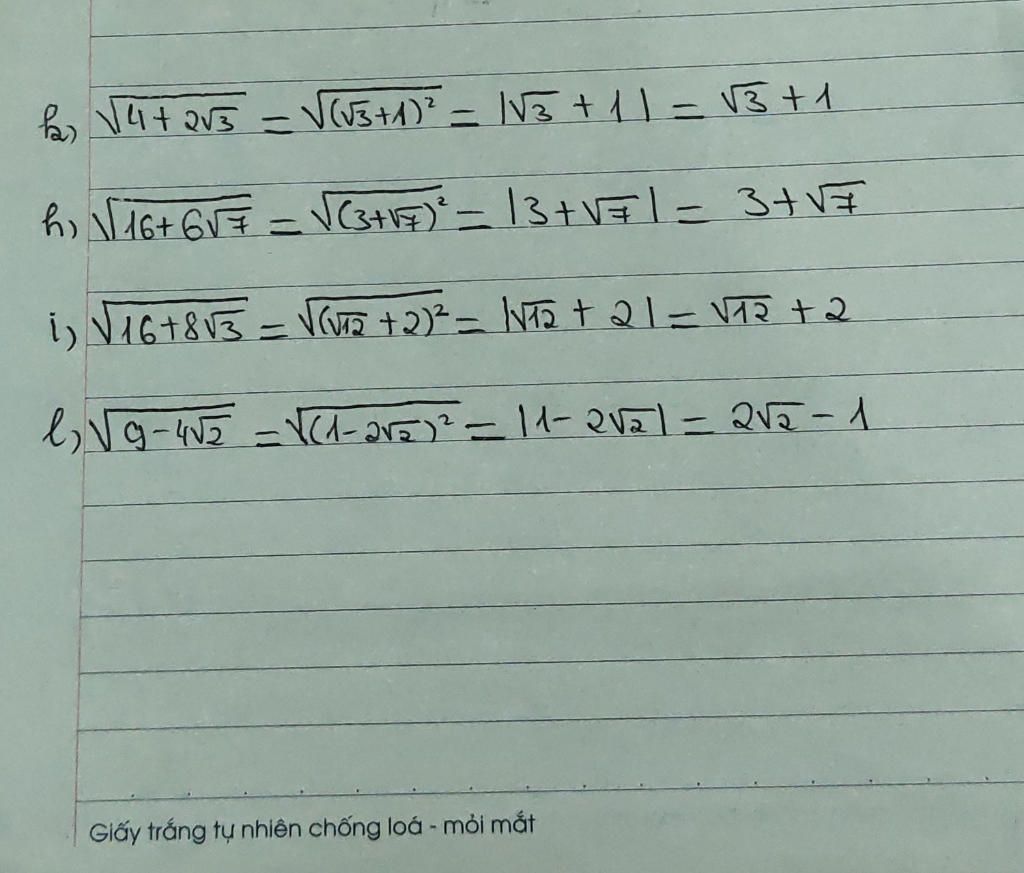 k) √(4+2√3) = √((√3+1)²) = |√3 + 1| = √3 + 1
h) √(16+6√7) = √((3+√7)²) = |3+√7| = 3+√7
i) √(16+8√3) = √((√12+2)²) = |√12 + 2| = √12 + 2
l) √(9-4√2) = √((1-2√2)²) = |1-2√2| = 2√2 - 1
Giấy trắng tự nhiên chống loá - mỏi mắt